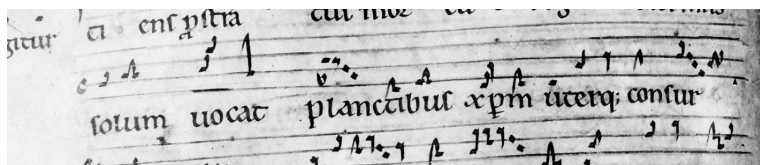 gitur ti ens ꝓstra
solum uocat planctibus xp̄m uterq; consur